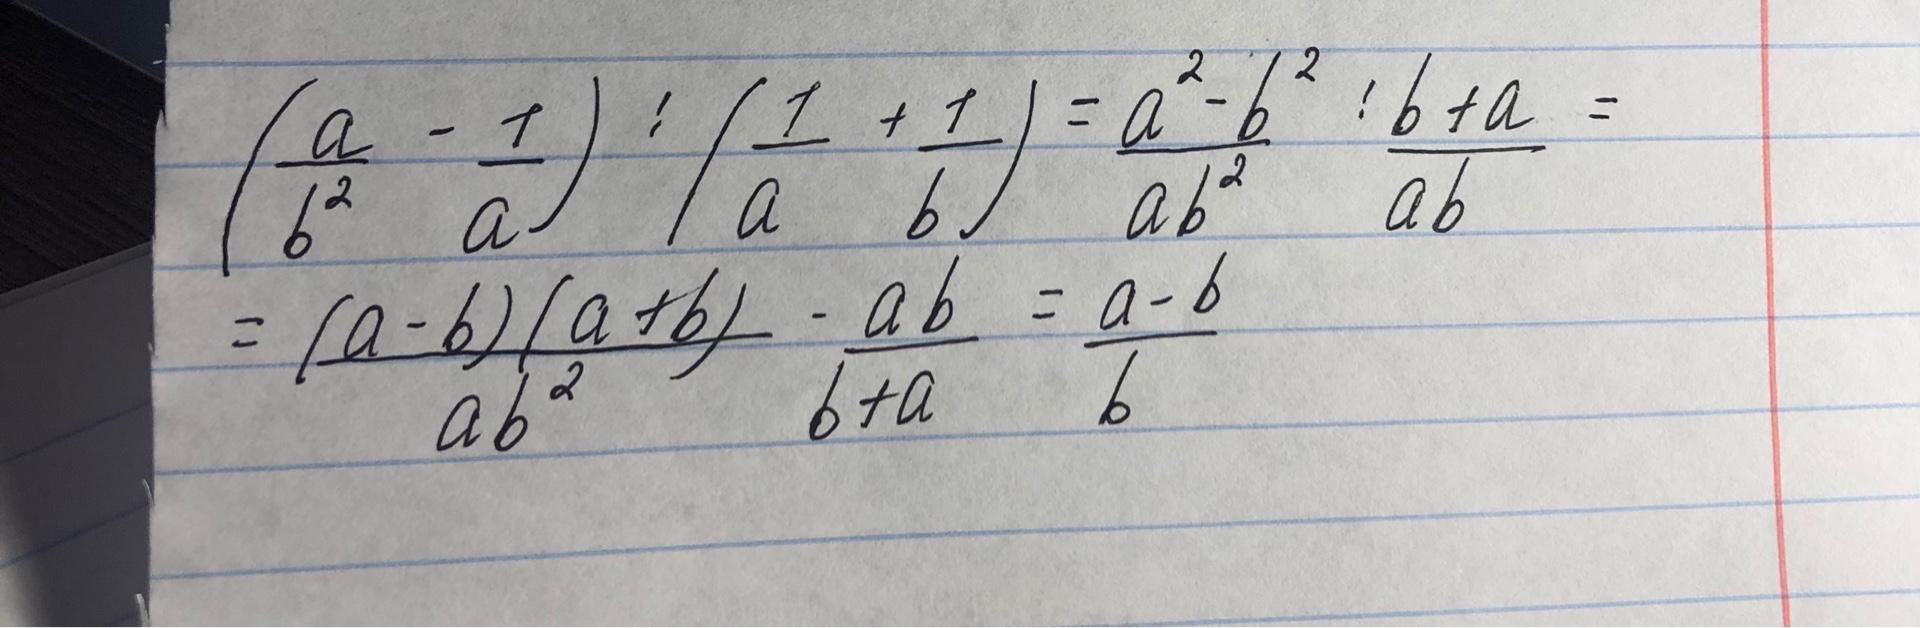 (a/b² - 1/a) : (1/a + 1/b) = (a² - b²)/(ab²) : (b + a)/(ab) =
= ((a - b)(a + b))/(ab²) · (ab)/(b + a) = (a - b)/b